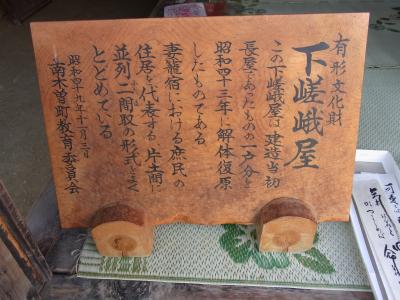 有形文化財
下嵯峨屋
この下嵯峨屋は建造当初
長屋であったものの一戸分を
昭和四十三年に解体復原
したものである
妻籠宿における庶民の
住居を代表する片土間に
並列二間取の形式をよく
とどめている
昭和四十九年十二月二日
南木曽町教育委員会